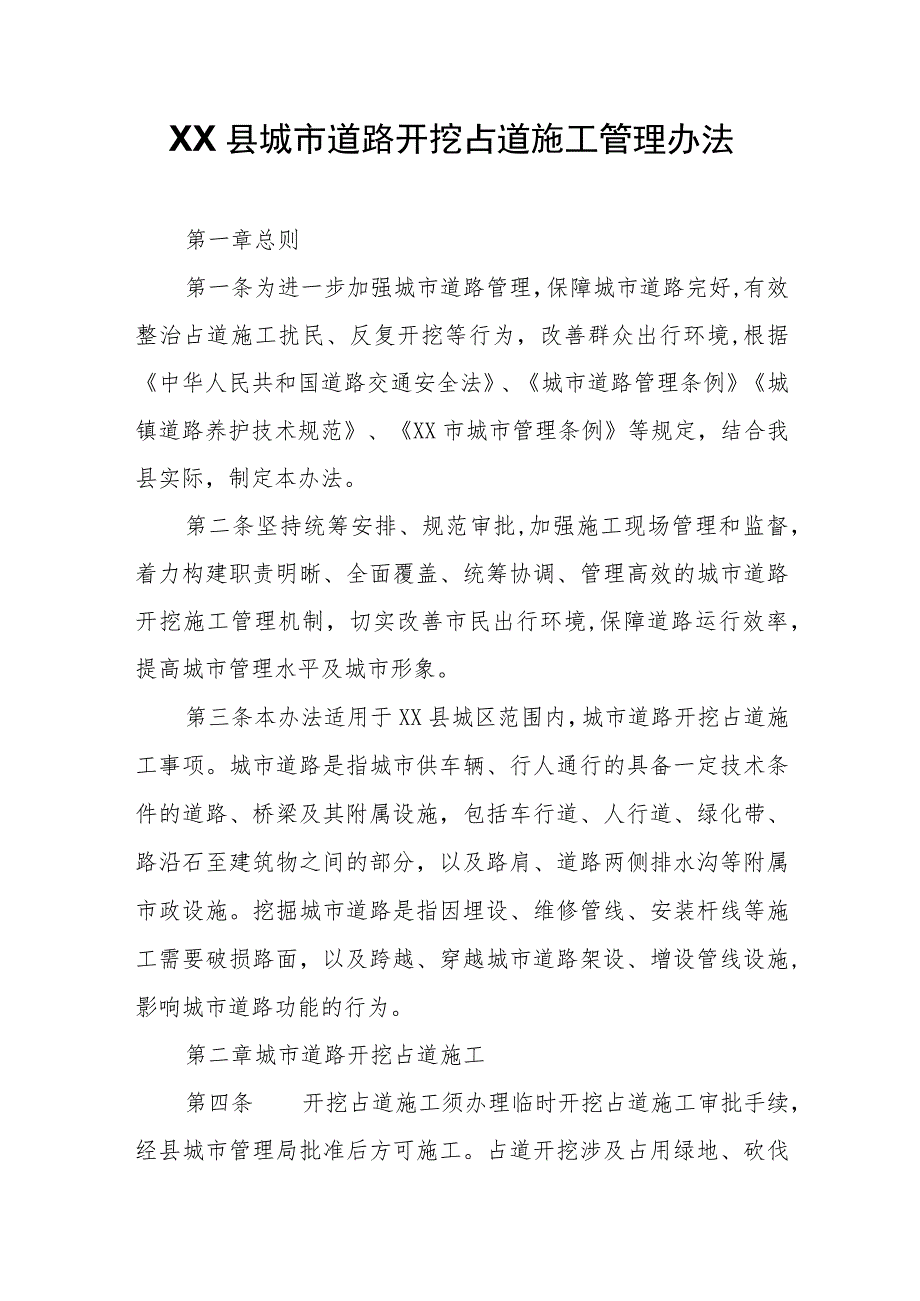 XX 县城市道路开挖占道施工管理办法
第一章总则
第一条为进一步加强城市道路管理,保障城市道路完好,有效
整治占道施工扰民、反复开挖等行为，改善群众出行环境,根据
《中华人民共和国道路交通安全法》、《城市道路管理条例》《城
镇道路养护技术规范》、《XX 市城市管理条例》等规定，结合我
县实际，制定本办法。
第二条坚持统筹安排、规范审批,加强施工现场管理和监督，
着力构建职责明晰、全面覆盖、统筹协调、管理高效的城市道路
开挖施工管理机制，切实改善市民出行环境,保障道路运行效率，
提高城市管理水平及城市形象。
第三条本办法适用于 XX 县城区范围内,城市道路开挖占道施
工事项。城市道路是指城市供车辆、行人通行的具备一定技术条
件的道路、桥梁及其附属设施，包括车行道、人行道、绿化带、
路沿石至建筑物之间的部分，以及路肩、道路两侧排水沟等附属
市政设施。挖掘城市道路是指因埋设、维修管线、安装杆线等施
工需要破损路面，以及跨越、穿越城市道路架设、增设管线设施,
影响城市道路功能的行为。
第二章城市道路开挖占道施工
第四条 开挖占道施工须办理临时开挖占道施工审批手续，
经县城市管理局批准后方可施工。占道开挖涉及占用绿地、砍伐